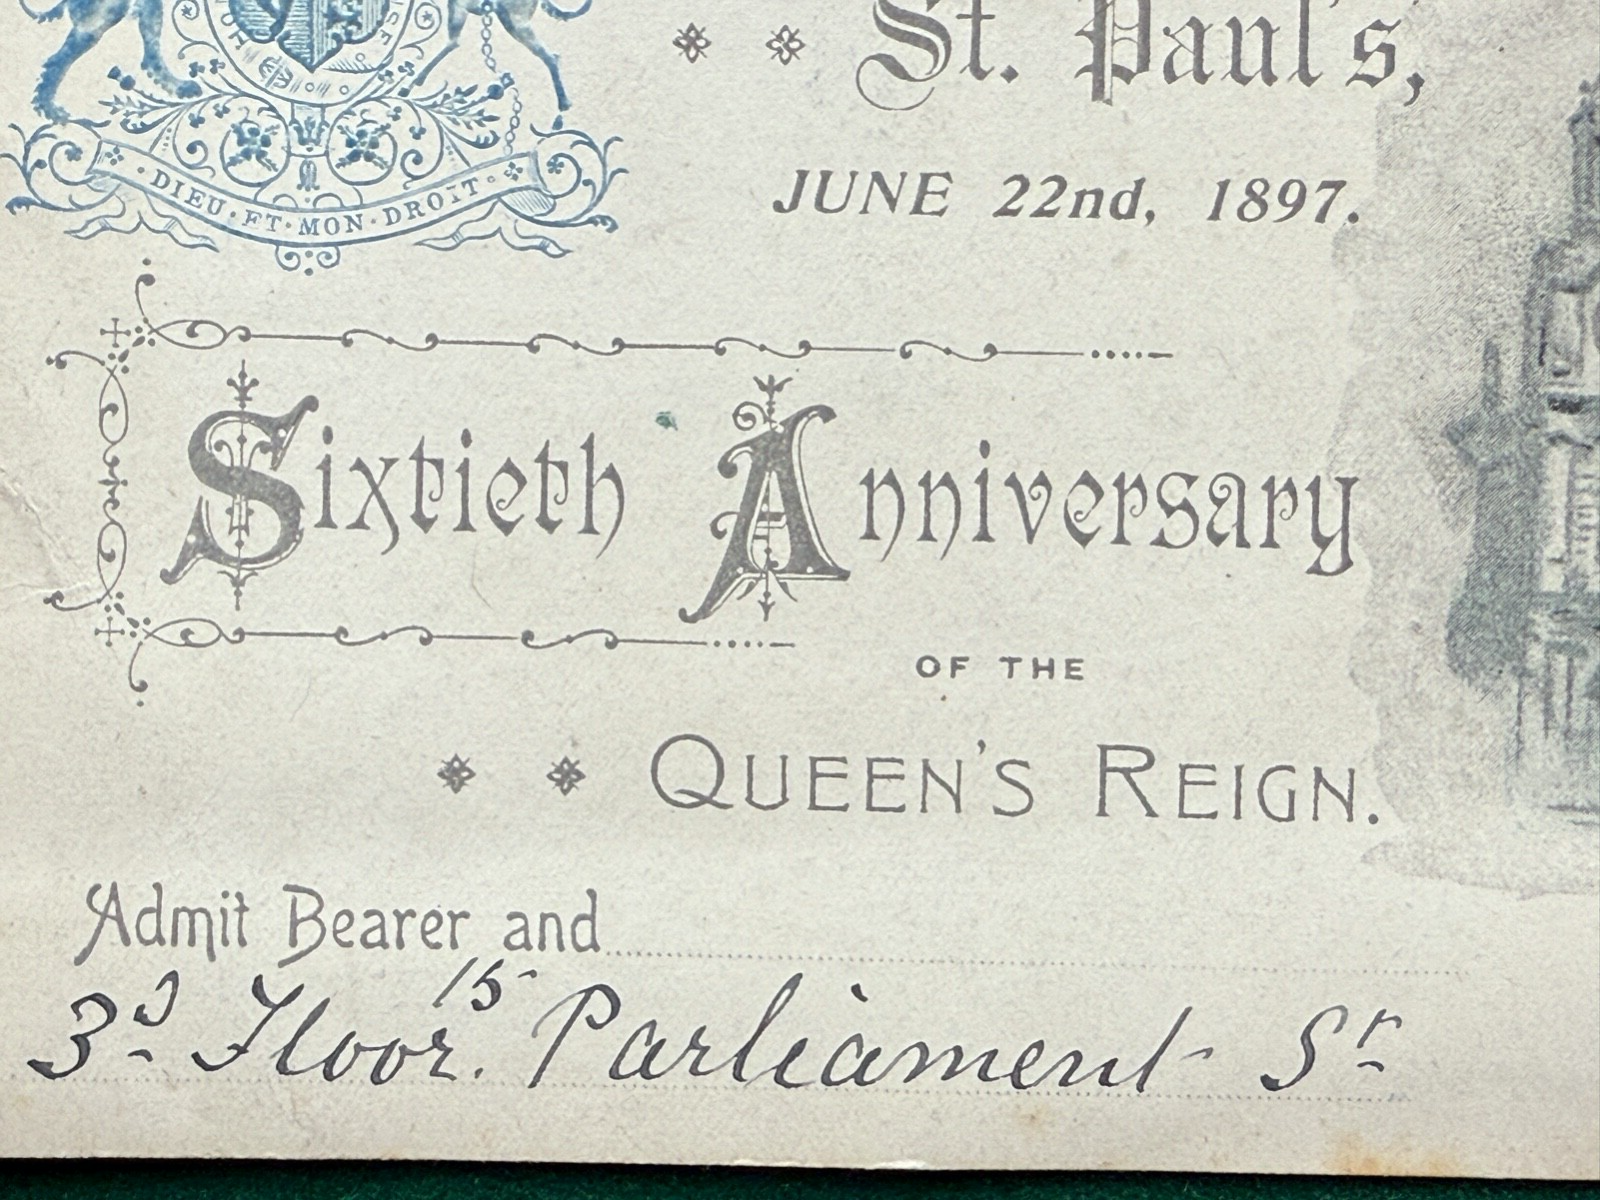 St. Paul's,
DIEU · ET · MON · DROIT
JUNE 22nd, 1897.
Sixtieth Anniversary
OF THE
QUEEN'S REIGN.
Admit Bearer and
15
3d Floor. Parliament St